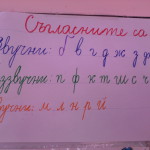 Съгласните са
Звучни: б в г д ж з ф
беззвучни: п ф к т ш с ч
звучни: м л н р й